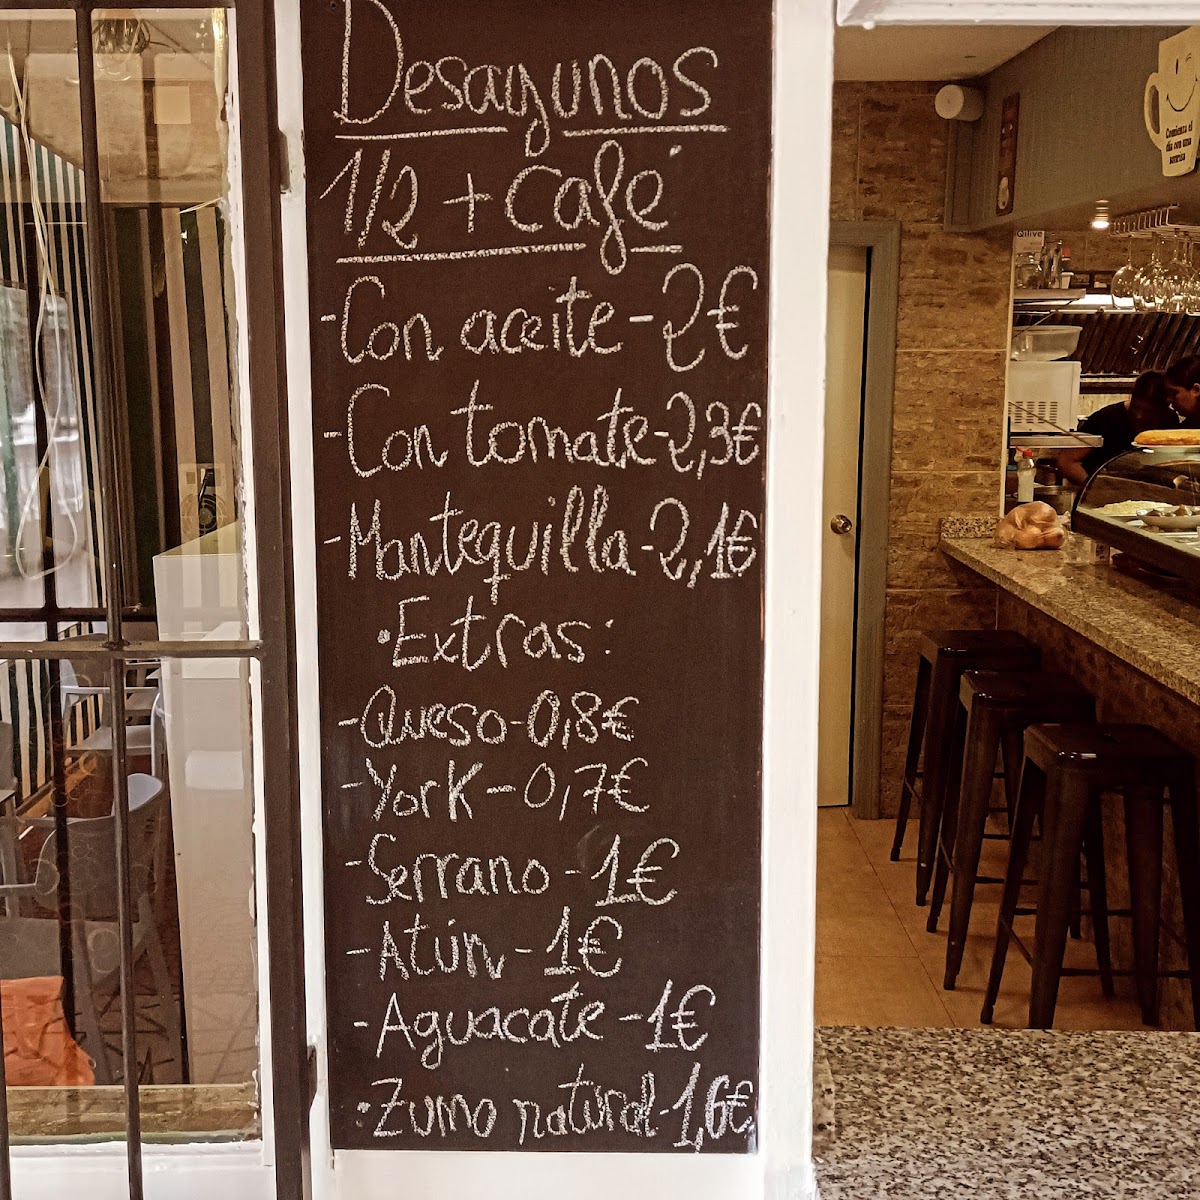 Desayunos
1/2 + Café
-Con aceite - 2€
-Con tomate - 2,3€
-Mantequilla - 2,1€
•Extras:
-Queso - 0,8€
-York - 0,7€
-Serrano - 1€
-Atún - 1€
-Aguacate - 1€
•Zumo natural - 1,6€
Comienza el
día con una
sonrisa